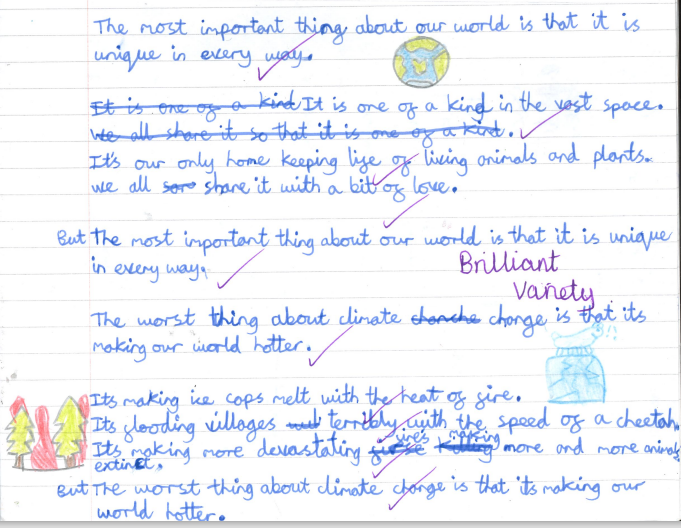 The most important thing about our world is that it is
unique in every way.
It is one of a kind It is one of a kind in the vast space.
we all share it so that it is one of a kind.
It's our only home keeping life of living animals and plants.
we all share it with a bit of love.
But The most important thing about our world is that it is unique
in every way.
Brilliant
Variety
The worst thing about climate change is that its
making our world hotter.
Its making ice caps melt with the heat of fire.
Its flooding villages terribly with the speed of a cheetah.
Its making more devastating fires making more and more animals
extinct.
But The worst thing about climate change is that its making our
world hotter.